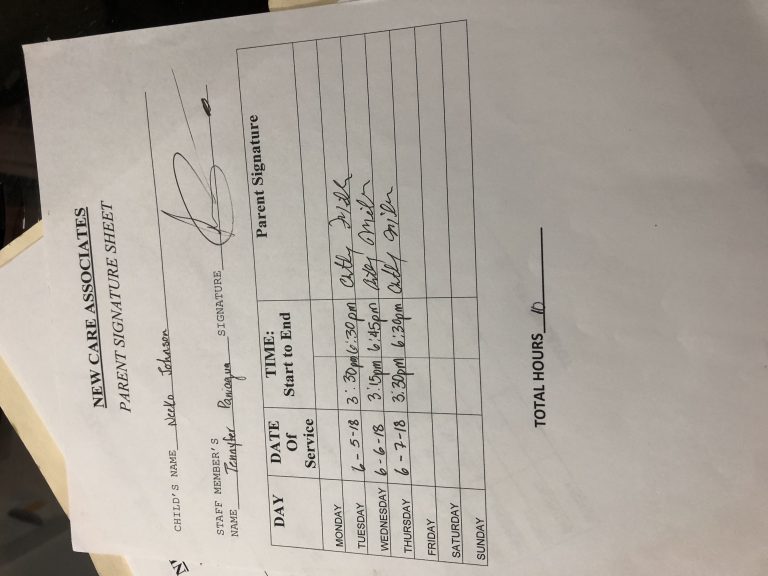 NEW CARE ASSOCIATES
PARENT SIGNATURE SHEET
CHILD'S NAME Neeko Johnson
STAFF MEMBER'S
NAME Tenayfer Paniagua SIGNATURE
DAY DATE Of Service TIME: Start to End Parent Signature
MONDAY
TUESDAY 6-5-18 3:30pm 6:30pm Cathy
WEDNESDAY 6-6-18 3:15pm 6:45pm Cathy
THURSDAY 6-7-18 3:30pm 6:30pm Cathy
FRIDAY
SATURDAY
SUNDAY
TOTAL HOURS 10